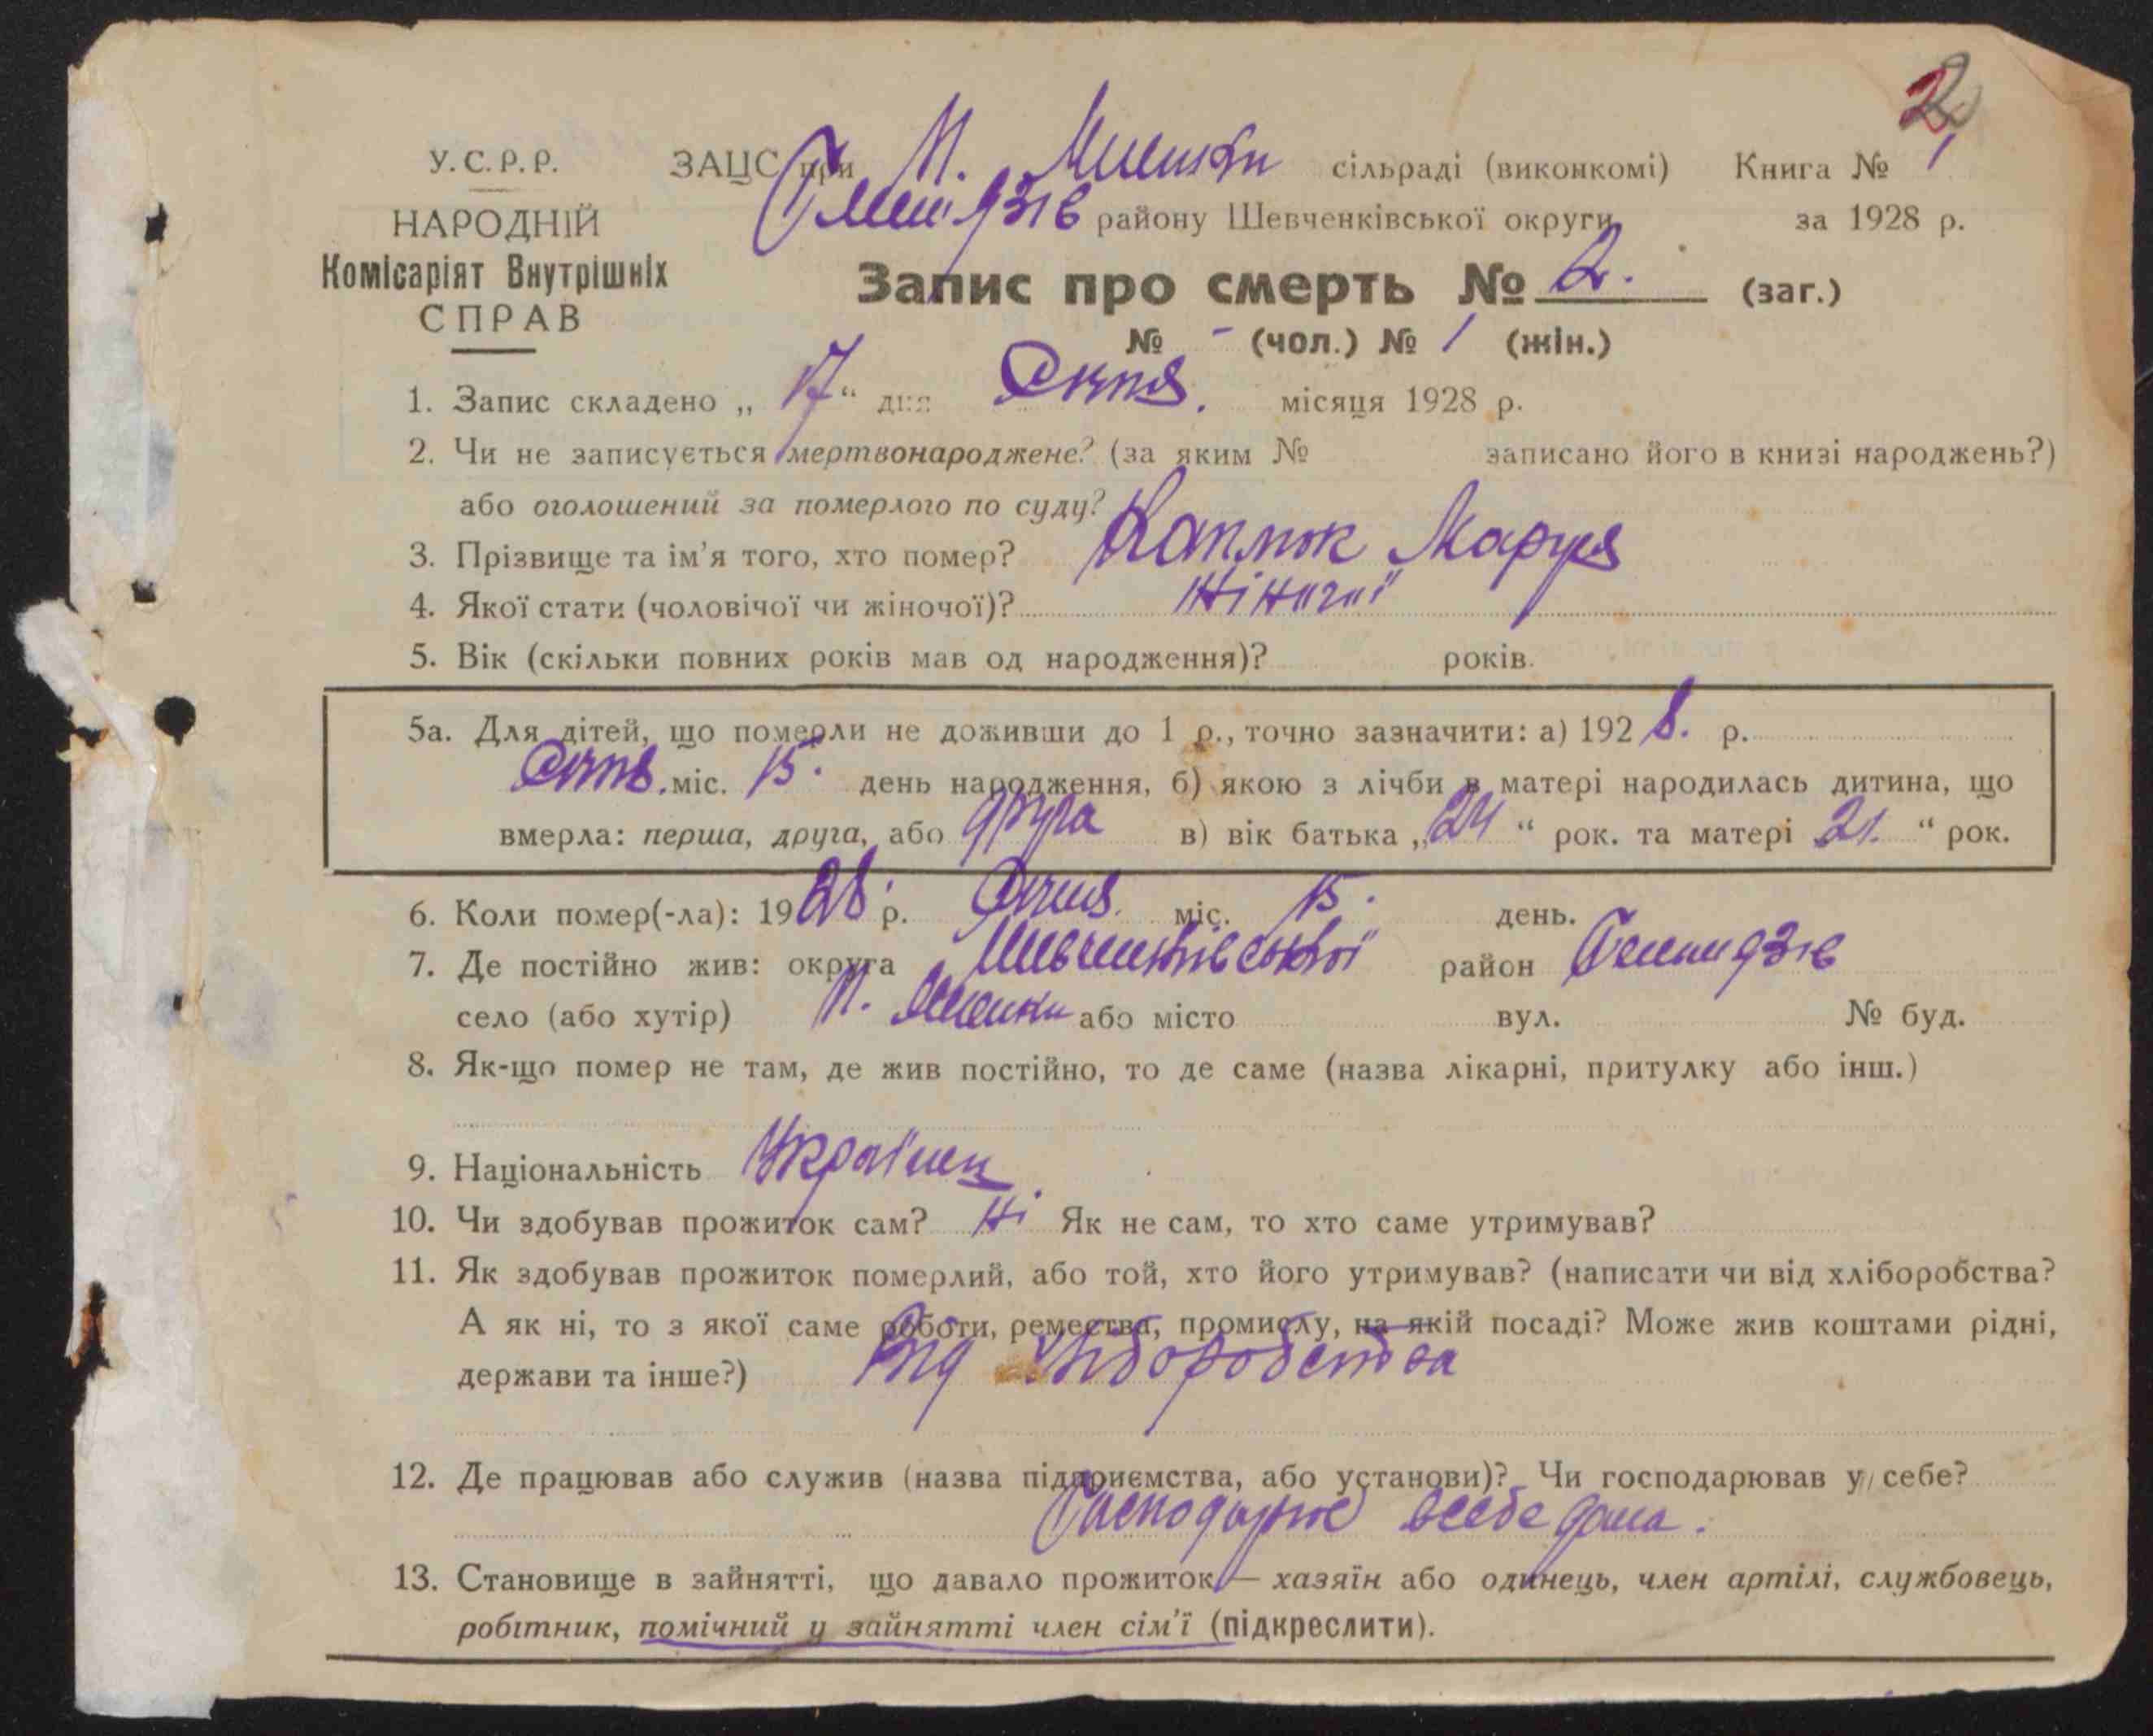 2
У.С.Р.Р. ЗАЦС при М. сільраді (виконкомі) Книга № 1
НАРОДНІЙ району Шевченківської округи за 1928 р.
Комісаріят Внутрішніх
СПРАВ
Запис про смерть № 2. (заг.)
№ - (чол.) № 1 (жін.)
1. Запис складено „ 17 “ дня місяця 1928 р.
2. Чи не записується мертвонароджене? (за яким № записано його в книзі народжень?)
або оголошений за померлого по суду?
3. Прізвище та ім'я того, хто помер? Маруся
4. Якої стати (чоловічої чи жіночої)? жіночої
5. Вік (скільки повних років мав од народження)? років.
5а. Для дітей, що померли не доживши до 1 р., точно зазначити: а) 192 8. р.
міс. 15. день народження, б) якою з лічби в матері народилась дитина, що
вмерла: перша, друга, або друга в) вік батька „ 24 “ рок. та матері 21. “ рок.
6. Коли помер(-ла): 19 28 р. міс. 15. день.
7. Де постійно жив: округа Шевченківської район
село (або хутір) М. або місто вул. № буд.
8. Як-що помер не там, де жив постійно, то де саме (назва лікарні, притулку або інш.)
9. Національність Українец
10. Чи здобував прожиток сам? Ні Як не сам, то хто саме утримував?
11. Як здобував прожиток померлий, або той, хто його утримував? (написати чи від хліборобства?
А як ні, то з якої саме роботи, ремества, промислу, на якій посаді? Може жив коштами рідні,
держави та інше?) Від хліборобства
12. Де працював або служив (назва підприємства, або установи)? Чи господарював у себе?
всебе дома.
13. Становище в зайнятті, що давало прожиток, — хазяїн або одинець, член артілі, службовець,
робітник, помічний у зайнятті член сім'ї (підкреслити).